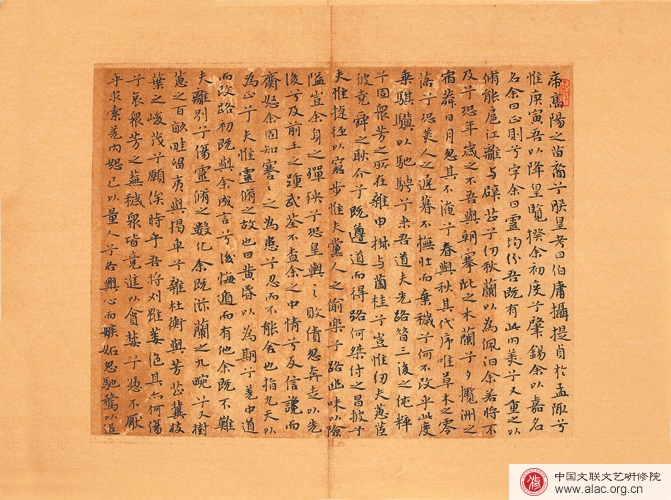 帝高陽之苗裔兮朕皇考曰伯庸攝提貞於孟陬兮
惟庚寅吾以降皇覽揆余初度兮肇錫余以嘉名
名余曰正則兮字余曰靈均紛吾既有此內美兮又重之以
脩能扈江離與辟芷兮紉秋蘭以為佩汩余若將不
及兮恐年歲之不吾與朝搴阰之木蘭兮夕攬洲之
宿莽日月忽其不淹兮春與秋其代序唯草木之零
落兮恐美人之遲暮不撫壯而棄穢兮何不改乎此度
乘騏驥以馳騁兮來吾道夫先路昔三後之純粹
兮固衆芳之所在雜申椒與菌桂兮豈惟紉夫蕙茝
彼堯舜之耿介兮既遵道而得路何桀紂之昌披兮
夫惟捷徑以窘步惟夫黨人之偷樂兮路幽昧以險
隘豈余身之憚殃兮恐皇輿之敗績忽奔走以先
後兮及前王之踵武荃不查余之中情兮反信讒而
齋怒余固知謇謇之為患兮忍而不能舍也指九天以
為正兮夫惟靈脩之故也曰黃昏以為期兮羌中道
而改路初既與余成言兮後悔遁而有他余既不難
夫離別兮傷靈脩之數化余既滋蘭之九畹兮又樹
蕙之百畝畦留夷與揭車兮雜杜衡與芳芷冀枝
葉之峻茂兮願俟時乎吾將刈雖萎絕其亦何傷
兮哀衆芳之蕪穢衆皆競進以貪婪兮憑不厭
乎求索羌內恕己以量人兮各興心而嫉妬忽馳騖以追
中国文联文艺研修院
www.alac.org.cn